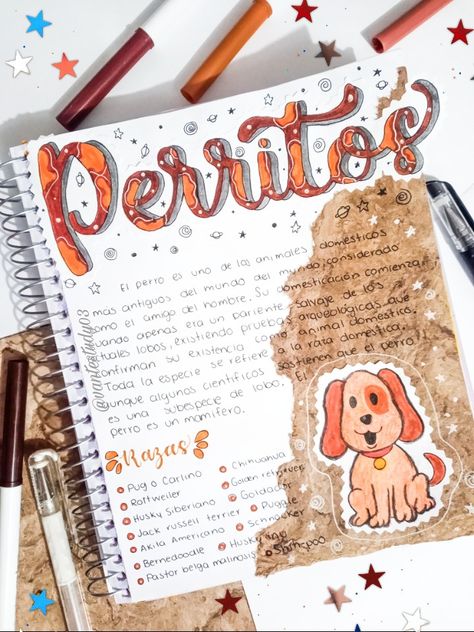 Perritos
El perro es uno de los animales domésticos
más antiguos del mundo del mundo, considerado
como el amigo del hombre. Su domesticación comienza
cuando apenas era un pariente salvaje de los
actuales lobos, existiendo pruebas arqueológicas que
confirman su existencia como animal domestico.
Toda la especie se refiere a la rata domestica,
aunque algunos científicos sostienen que el perro
es una subespecie de lobo. El
perro es un mamífero.
@vanistestudyo3
Razas
Pug o Carlino
Rottweiler
Husky siberiano
Jack russell terrier
Akita Americano
Bernedoodle
Pastor belga malinois
Chihuahua
Golden retriever
Goldador
Puggle
Schnocker
Husky